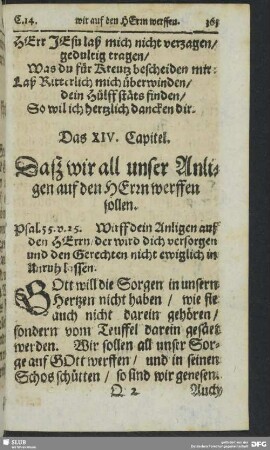 C.14. wir auf den HErrn werffen. 363
HErr JEsu laß mich nicht verzagen/
gedultig tragen/
Was du für Kreutz bescheiden mir:
Laß Ritterlich mich überwinden/
dein Hülff stäts finden/
So wil ich hertzlich dancken dir.
Das XIV. Capitel.
Daß wir all unser Anli-
gen auf den HErrn werffen
sollen.
Psal. 55. v. 25. Wuff dein Anligen auff
den HErrn/ der wird dich versorgen
und den Gerechten nicht ewiglich in
Unruh lassen.
GOtt will die Sorgen in unsern
Hertzen nicht haben/ wie sie
auch nicht darein gehören/
sondern vom Teuffel darein gesäet
werden. Wir sollen all unser Sor-
ge auf GOtt werffen/ und in seinen
Schos schütten/ so sind wir genesen.
Q 2 Auch
SLUB